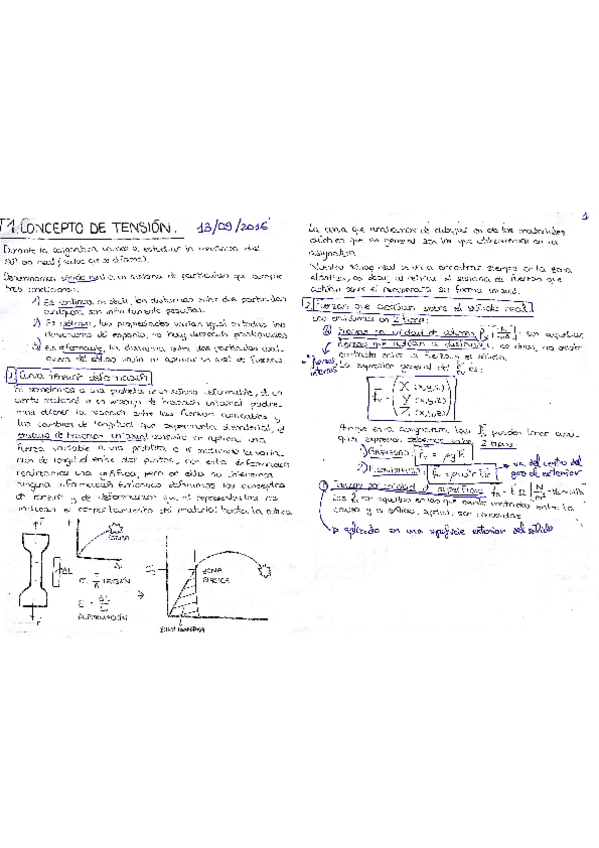 T1. CONCEPTO DE TENSIÓN. 13/09/2016
Durante la asignatura vamos a estudiar la mecánica del
sólido real (sólido
Denominamos sólido real a un sistema de partículas que cumple
tres condiciones:
1) Es continuo, es decir, las distancias entre dos partículas
cualquiera son infinitamente pequeñas.
2) las propiedades varían igual en todas las
direcciones del espacio, no hay dirección
3) Es deformable, la distancia entre dos partículas cual-
quiera del sólido varía al aplicar un sist. de fuerzas.
1) Curva tensión deformación
Si sometemos a una probeta de un sólido deformable, de un
cierto material a un ensayo de tracción uniaxial podre-
mos obtener la relación entre las fuerzas aplicadas y
los cambios de longitud que experimenta el material, el
ensayo de tracción uniaxial consiste en aplicar una
fuerza variable a una probeta e ir midiendo la varia-
ción de longitud entre dos puntos, con esta información
realizamos una gráfica, pero de ella no obtenemos
ninguna información, entonces definimos los conceptos
de tensión y de deformación que al representarlos nos
indican el comportamiento del material hasta la rotura
ROTURA
ΔL
TENSIÓN
DEFORMACIÓN
F
ZONA
ZONA
1
La curva que acabamos de dibujar es de los materiales
dúctiles que en general son los que utilizaremos en la
asignatura.
Nuestro sólido real se va a encontrar siempre en la zona
elástica, es decir, al retirar el sistema de fuerzas que
actúan sobre él recuperará su forma inicial.
2) Fuerzas que actúan sobre el sólido real
Las dividimos en 2 tipos:
a) Fuerzas por unidad de volumen son aquellas
fuerzas que actúan a distancia, es decir, no existe
contacto entre la fuerza y el sólido.
La expresión general del es:
X (x,y,z)
Y (x,y,z)
Z (x,y,z)
Aunque en la asignatura las pueden tener cual-
quier expresión debemos 2 tipos
va del centro del
giro al exterior
b) Fuerzas por unidad de superficie
Las son aquellas en las que existe contacto entre la
causa y el efecto,
aplicada en una superficie exterior del sólido